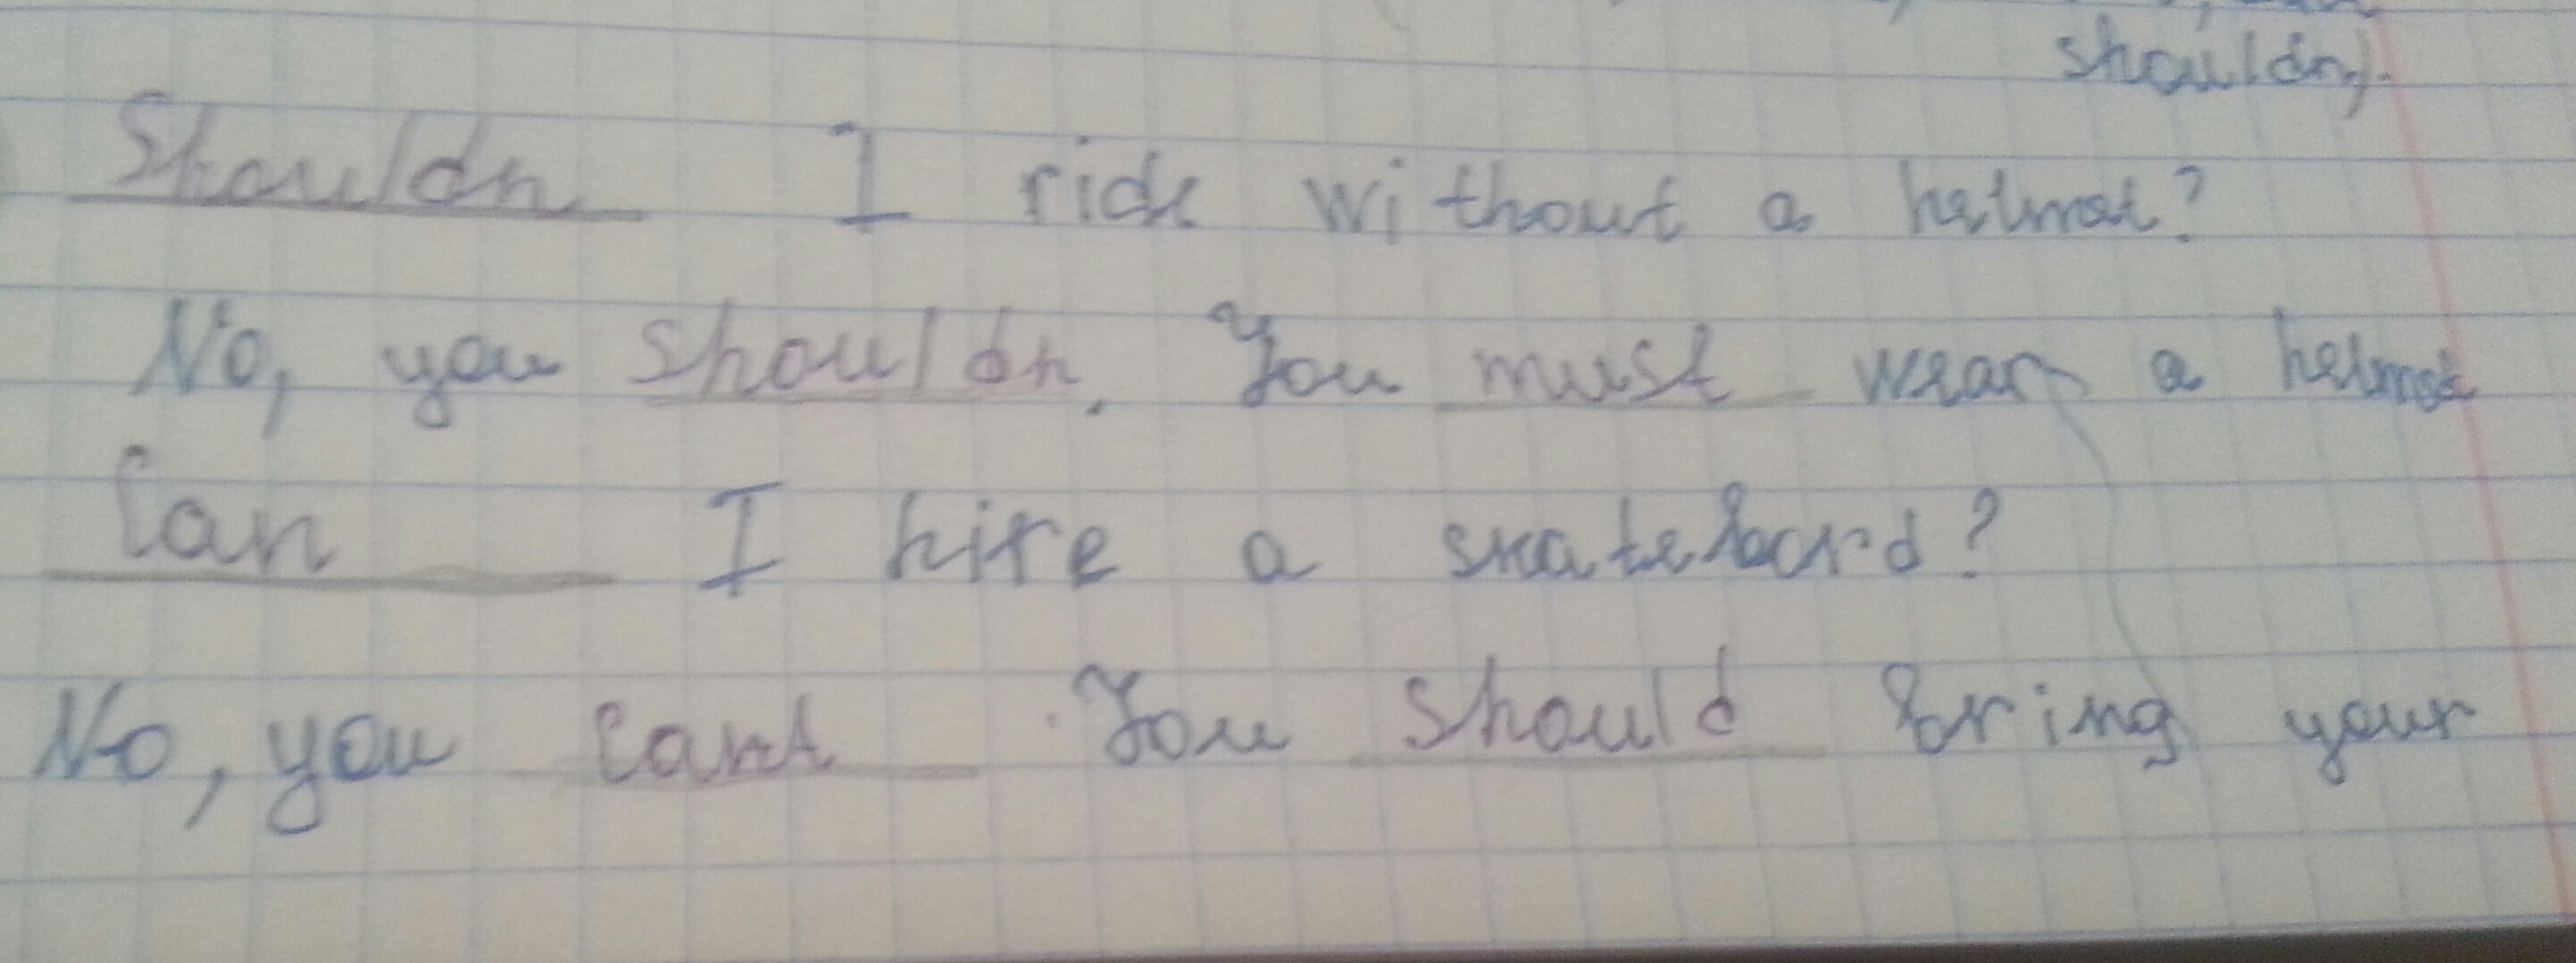 shouldn).
Shouldn I ride without a helmet?
No, you shouldn. You must wear a helmet
Can I hire a skateboard?
No, you cant. You should bring your